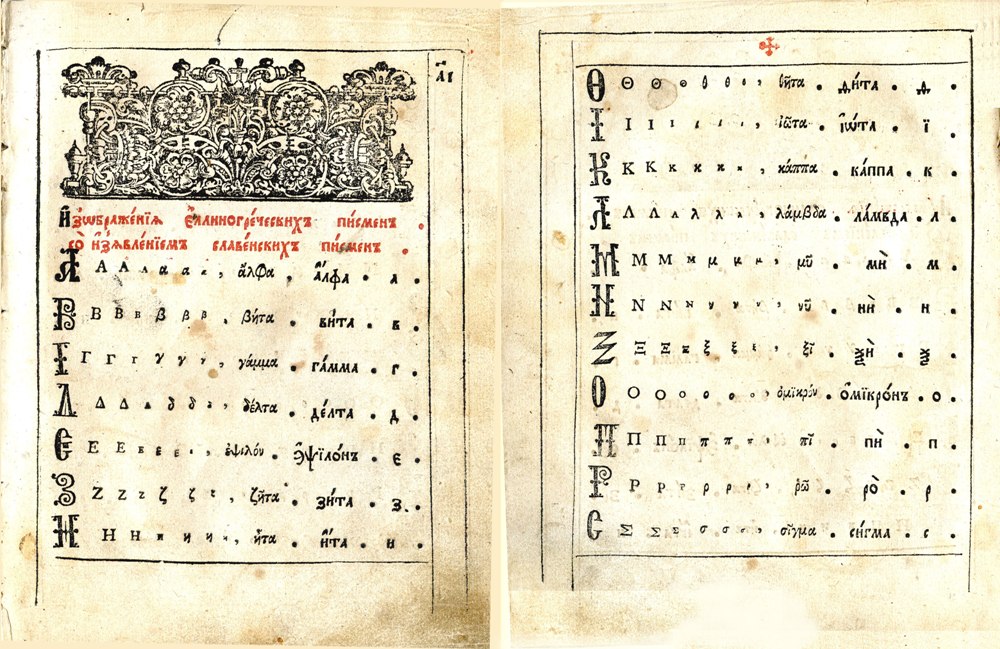 а҃і
И҆зѡбраже́нїѧ є҆́ллиногре́ческихъ пи́сменъ .
со и҆з̾ѧвле́нїемъ славе́нскихъ пи́сменъ .
А Α Α α α α , ἄλφα , а҆́лфа . а .
В Β Β β β β , βῆτα . ви́та . в .
Г Γ Γ γ γ γ , γάμμα . га́мма . г .
Δ Δ Δ δ δ δ , δέλτα . де́лта . д .
Є Ε Ε ε ε ε , ἐψιλόν . э҆ѱїло́нъ . є .
З Ζ Ζ ζ ζ ζ , ζῆτα . зи́та . з .
Н Η Η η η η , ἦτα . и҆́та . и .
Ѳ Θ Θ θ θ θ θ , θῆτα . ѳи́та . ѳ .
І Ι Ι ι ι ι , ἰῶτα . і҆ѡ́та . ї .
К Κ Κ κ κ κ , κάππα . ка́ппа . к .
Λ Λ Λ λ λ λ , λάμβδα . ла́мвда . л .
М Μ Μ μ μ μ μ , μῦ . мѝ . м .
Н Ν Ν ν ν ν , νῦ . нѝ . н .
Ξ Ξ Ξ ξ ξ ξ , ξῖ . ѯѝ . ѯ .
О Ο Ο ο ο ο ο , ὀμικρόν . о҆мїкро́нъ . о .
П Π Π π π π π , πῖ . пѝ . п .
Р Ρ Ρ ρ ρ ρ ρ , ῥῶ . ро̀ . р .
С Σ Σ Σ σ σ σ , σῖγμα . си́гма . с .